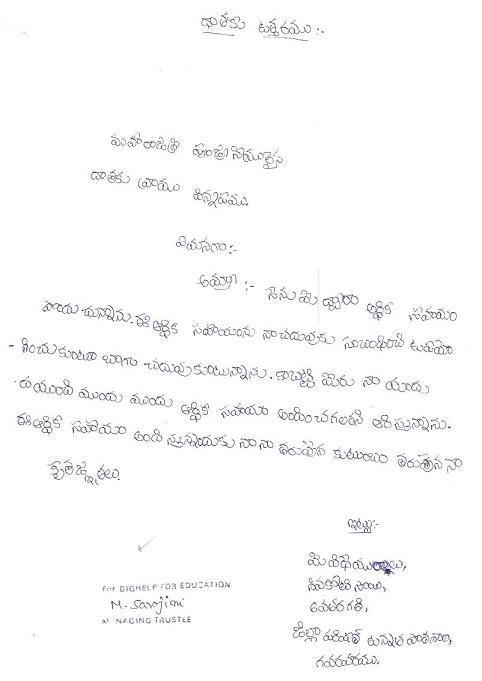 దాతకు ఉత్తరము :-
మహారాజశ్రీ పూజ్యనీయులైన
దాతకు వ్రాయు విన్నపము.
ఏమనగా :-
అయ్యా :- నేను మీ ద్వారా ఆర్థిక సహాయం
పొందుచున్నాను. ఈ ఆర్థిక సహాయంను నా చదువుకు సంబంధించి ఉపయో
- గించుకుంటూ బాగా చదువుకుంటున్నాను. కాబట్టి మీరు నా యందు
దయుంచి ముందు ముందు ఆర్థిక సహాయం అందించగలరని ఆశిస్తున్నాను.
ఈ ఆర్థిక సహాయం అందిస్తున్నందుకు నా తరుపున కుటుంబం తరుపున నా
కృతజ్ఞతలు.
ఇట్లు :-
మీ విధేయులు,
6వతరగతి,
జిల్లా పరిషత్ ఉన్నత పాఠశాల,
గవరవరము.
For BIGHELP FOR EDUCATION
M. Sarojini
MANAGING TRUSTEE